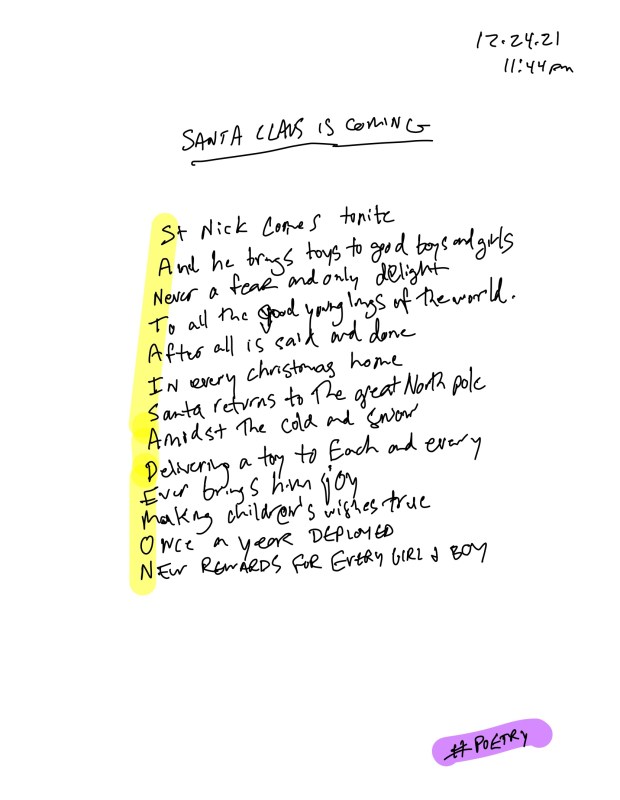 12.24.21
11:44pm
SANTA CLAUS IS COMING
St Nick comes tonite
And he brings toys to good boys and girls
Never a fear and only delight
To all the good younglings of the world.
After all is said and done
IN every christmas home
Santa returns to The great North pole
Amidst The cold and snow
Delivering a toy to Each and every
Ever brings him joy
Making children's wishes true
Once a year DEPLOYED
NEW REWARDS FOR EVERY GIRL & BOY
#POETRY